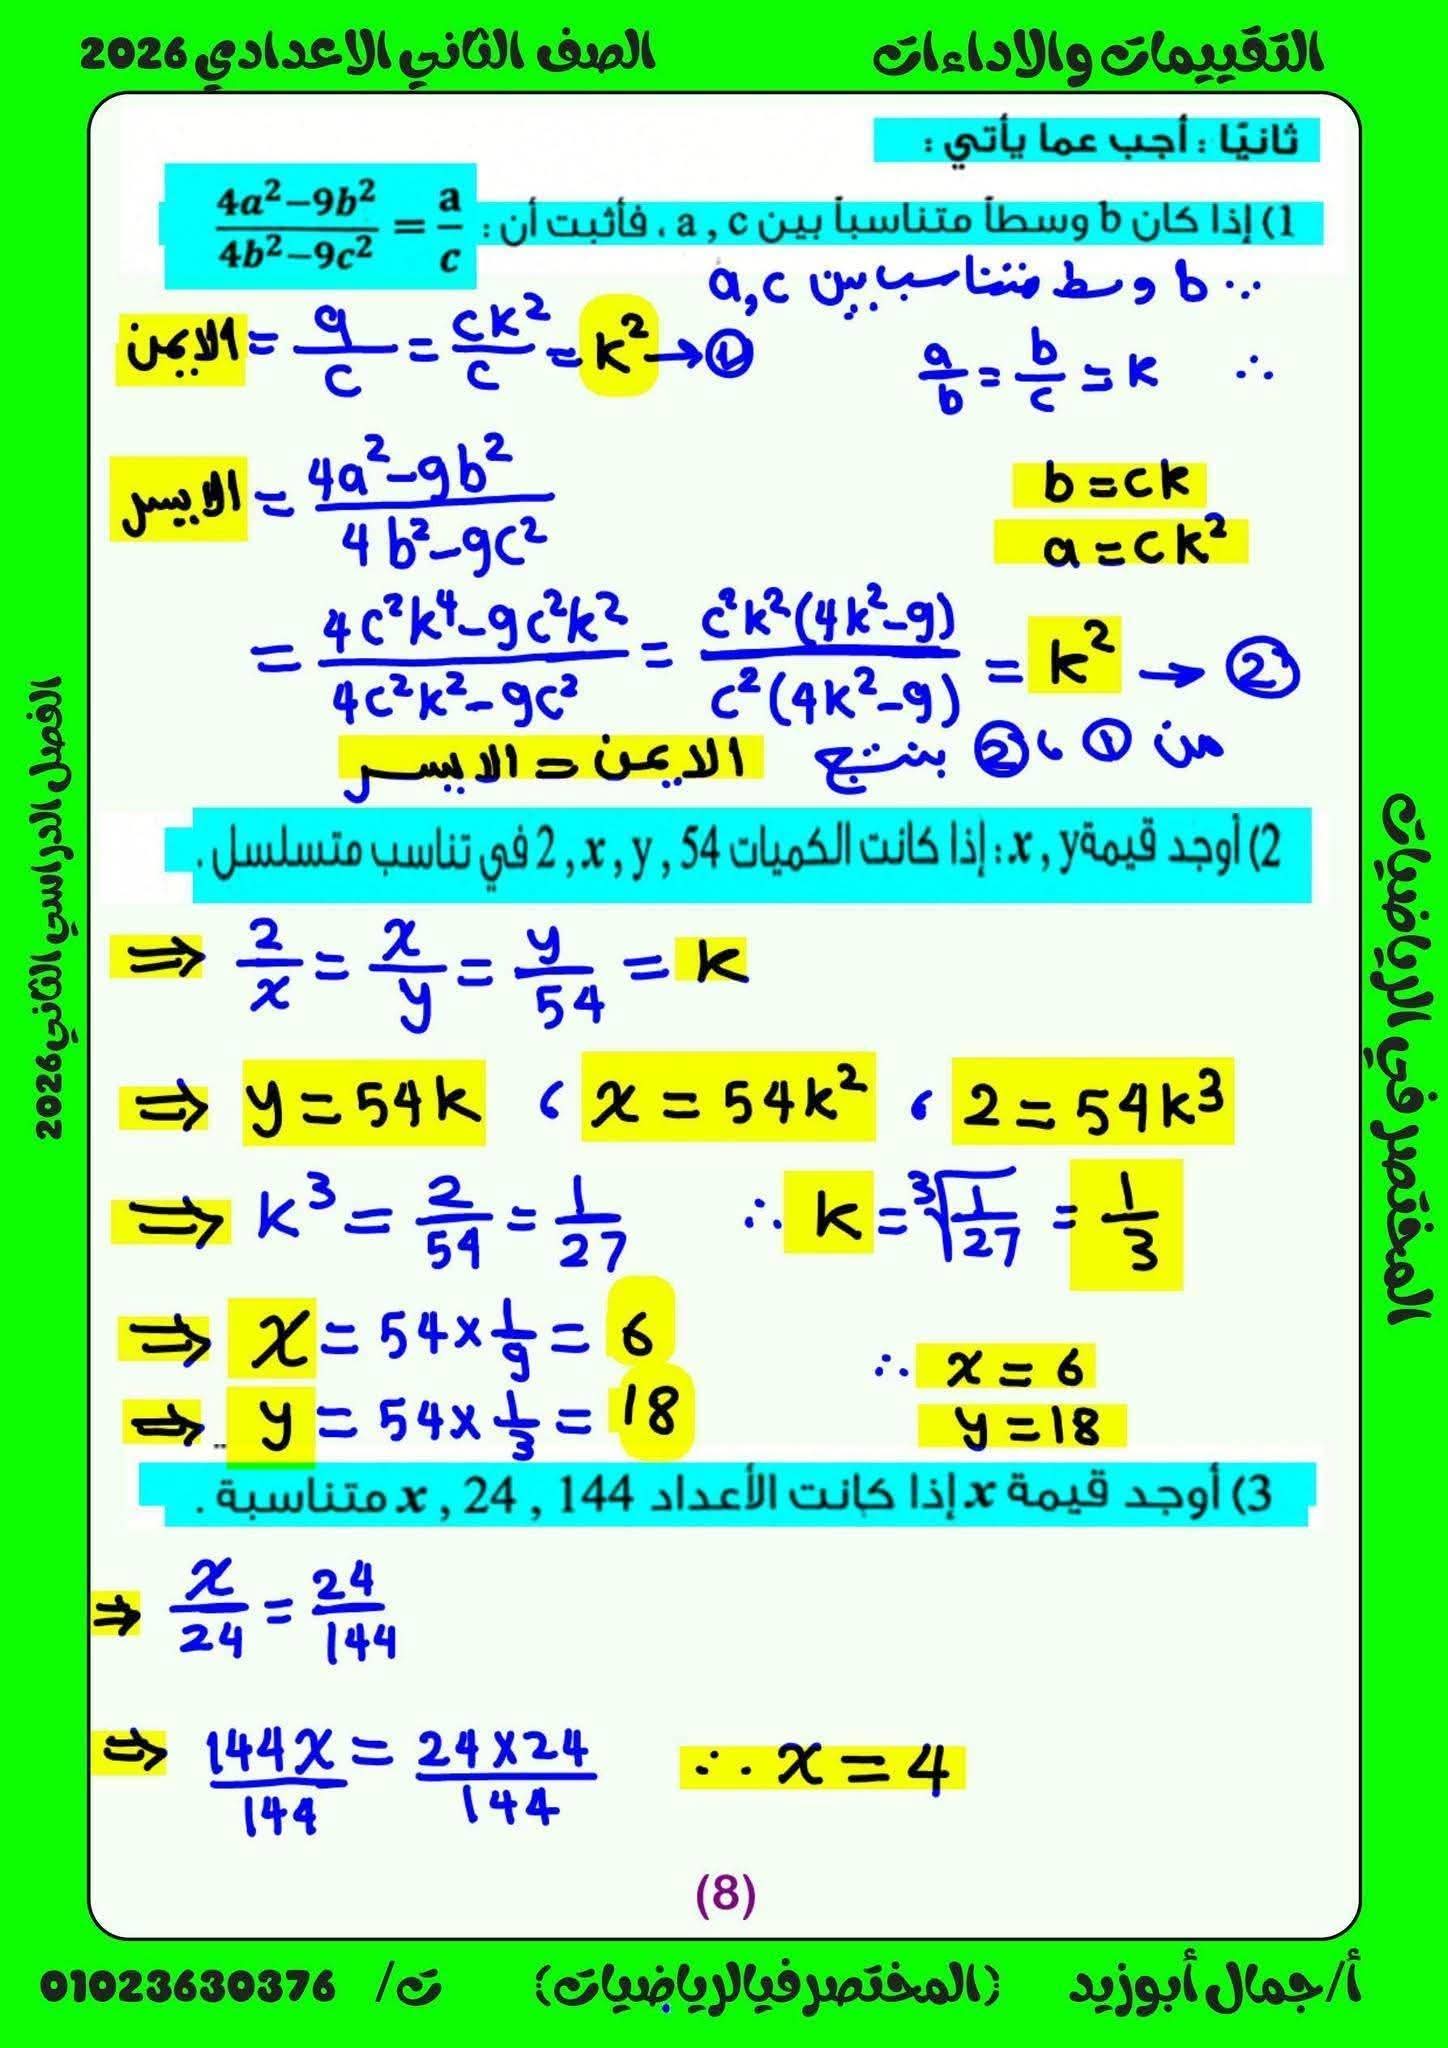 التقييمات والاداءات
الصف الثاني الاعدادي 2026
ثانيًا : أجب عما يأتي :
1) إذا كان b وسطاً متناسباً بين a , c ، فأثبت أن : (4a²−9b²)/(4b²−9c²) = a/c
∵ b وسط متناسب بين a,c
∴ a/b = b/c = k
b = ck
a = ck²
الايمن = a/c = ck²/c = k² → ①
الايسر = (4a²-9b²)/(4b²-9c²)
= (4c²k⁴-9c²k²)/(4c²k²-9c²) = c²k²(4k²-9)/c²(4k²-9) = k² → ②
من ① ، ② ينتج الايمن = الايسر
2) أوجد قيمة x , y : إذا كانت الكميات 2 , x , y , 54 في تناسب متسلسل .
⇒ 2/x = x/y = y/54 = k
⇒ y = 54k ، x = 54k² ، 2 = 54k³
⇒ k³ = 2/54 = 1/27 ∴ k = ³√(1/27) = 1/3
⇒ x = 54 × 1/9 = 6
⇒ y = 54 × 1/3 = 18
∴ x = 6
y = 18
3) أوجد قيمة x إذا كانت الأعداد x , 24 , 144 متناسبة .
⇒ x/24 = 24/144
⇒ 144x/144 = 24×24/144 ∴ x = 4
(8)
الفصل الدراسي الثاني 2026
المختصر في الرياضيات
أ/جمال أبوزيد
(المختصر في الرياضيات)
ت/ 01023630376